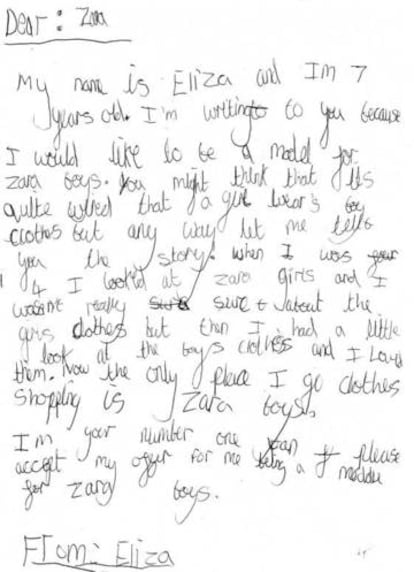 Dear: Zara
My name is Eliza and Im 7
years old. I'm writing to you because
I would like to be a model for
zara boys. You might think that Its
quite wired that a girl wear's boy
clothes but any way let me tell
you the story. when I was
4 I looked at zara girls and I
wasent really sure about the
girls clothes but then I had a little
look at the boys clothes and I Loved
them. Now the only place I go clothes
shopping is Zara boys.
I'm your number one fan please
accept my offer for me being a
for zara boys.
From: Eliza